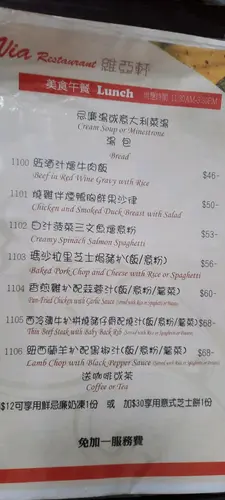 Via Restaurant 雅亞軒
美食午餐 Lunch
忌廉湯或意大利菜湯
Cream Soup or Minestrone
湯 包
Bread
1100 砵酒汁燴牛肉飯 $46-
Beef in Red Wine Gravy with Rice
1101 燒雞伴煙鴨胸鮮果沙律 $50-
Chicken and Smoked Duck Breast with Salad
1102 白汁菠菜三文魚燴意粉 $53-
Creamy Spinach Salmon Spaghetti
1103 瑪沙拉里芝士焗豬扒(飯/意粉) $56-
Baked Pork Chop and Cheese with Rice or Spaghetti
1104 香煎雞扒配蒜蓉汁(飯/意粉/薯菜) $60-
Pan-Fried Chicken with Garlic Sauce (Served with Rice or Spaghetti or Potatoes)
1105 西冷薄牛扒拼燒豬仔骨配燒汁(飯/意粉/薯菜) $68-
Thin Beef Steak with Baby Back Rib (Served with Rice or Spaghetti or Potatoes)
1106 紐西蘭羊扒配黑椒汁(飯/意粉/薯菜) $68-
Lamb Chop with Black Pepper Sauce (Served with Rice or Spaghetti or Potatoes)
送咖啡或茶
Coffee or Tea
$12可享用鮮忌廉奶凍1份 或 加$30享用意式芝士餅1份
免加一服務費